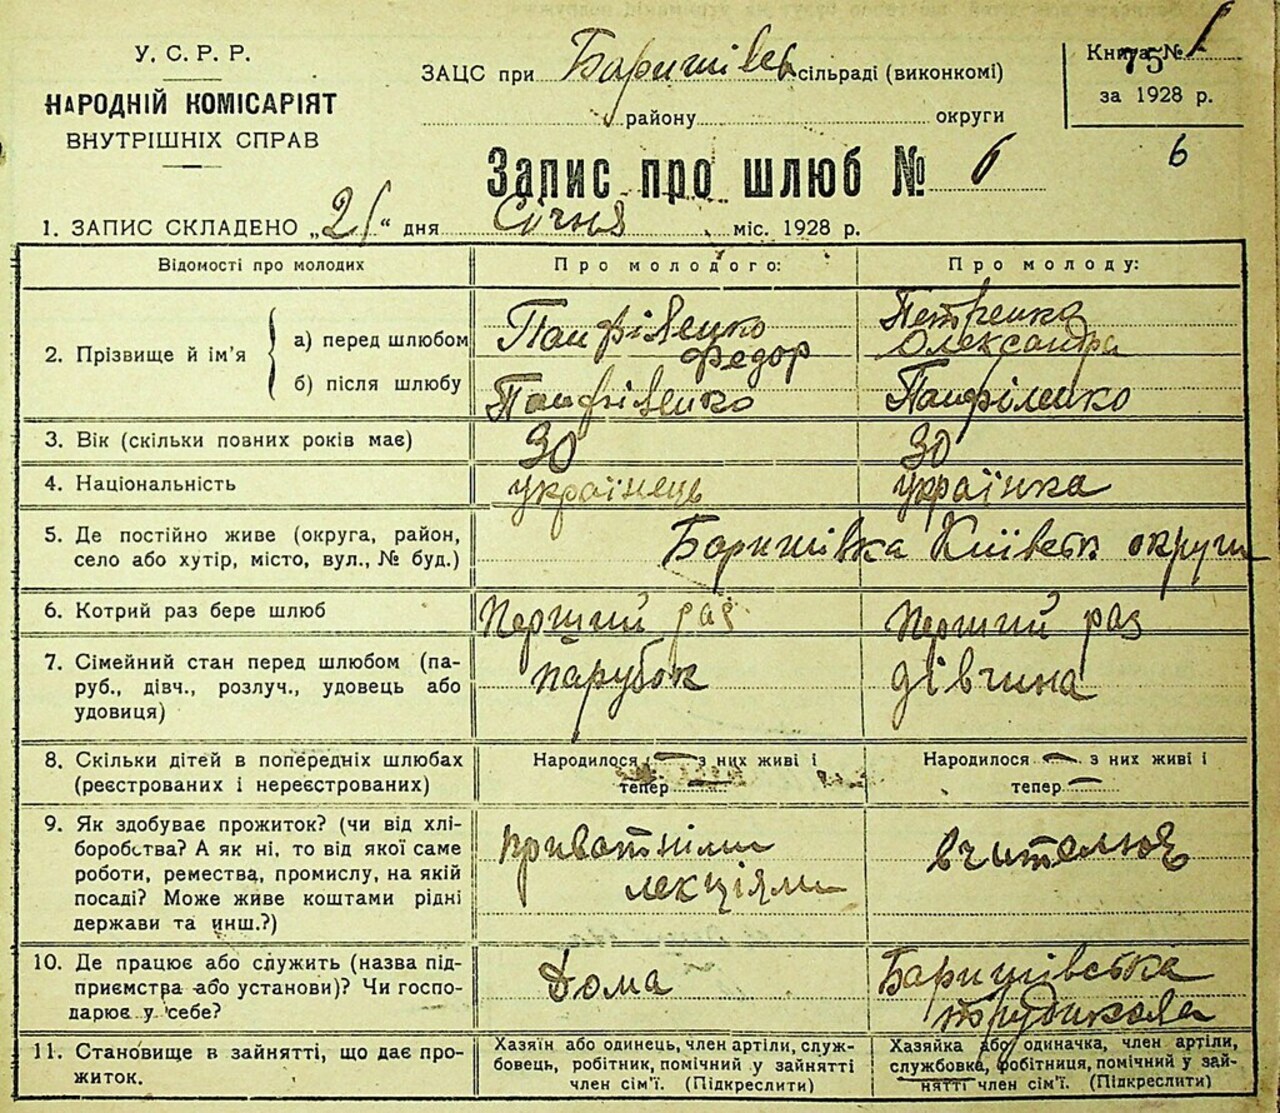 У. С. Р. Р.
НАРОДНІЙ КОМІСАРІЯТ
ВНУТРІШНІХ СПРАВ
ЗАЦС при Баришівськ сільраді (виконкомі)
району округи
Книга № 1
75
за 1928 р.
6
Запис про шлюб № 6
1. ЗАПИС СКЛАДЕНО „21“ дня Січня міс. 1928 р.
Відомості про молодих
Про молодого:
Про молоду:
2. Прізвище й ім'я
а) перед шлюбом
Панфіленко
Федор
Петренко
Олександра
б) після шлюбу
Панфіленко
Панфіленко
3. Вік (скільки повних років має)
30
30
4. Національність
українець
українка
5. Де постійно живе (округа, район,
село або хутір, місто, вул., № буд.)
Баришівка Київськ округи
6. Котрий раз бере шлюб
Перший раз
Перший раз
7. Сімейний стан перед шлюбом (па-
руб., дівч., розлуч., удовець або
удовиця)
парубок
дівчина
8. Скільки дітей в попередніх шлюбах
(реєстрованих і нереєстрованих)
Народилося — з них живі і
тепер —
Народилося — з них живі і
тепер —
9. Як здобуває прожиток? (чи від хлі-
боробства? А як ні, то від якої саме
роботи, ремества, промислу, на якій
посаді? Може живе коштами рідні
держави та инш.?)
приватніми
лекціями
вчителює
10. Де працює або служить (назва під-
приємстра або установи)? Чи госпо-
дарює у себе?
Дома
Баришівська
трудшкола
11. Становище в зайнятті, що дає про-
житок.
Хазяїн або одинець, член артіли, служ-
бовець, робітник, помічний у зайнятті
член сім'ї. (Підкреслити)
Хазяйка або одиначка, член артіли,
службовка, робітниця, помічний у зай-
нятті член сім'ї. (Підкреслити)